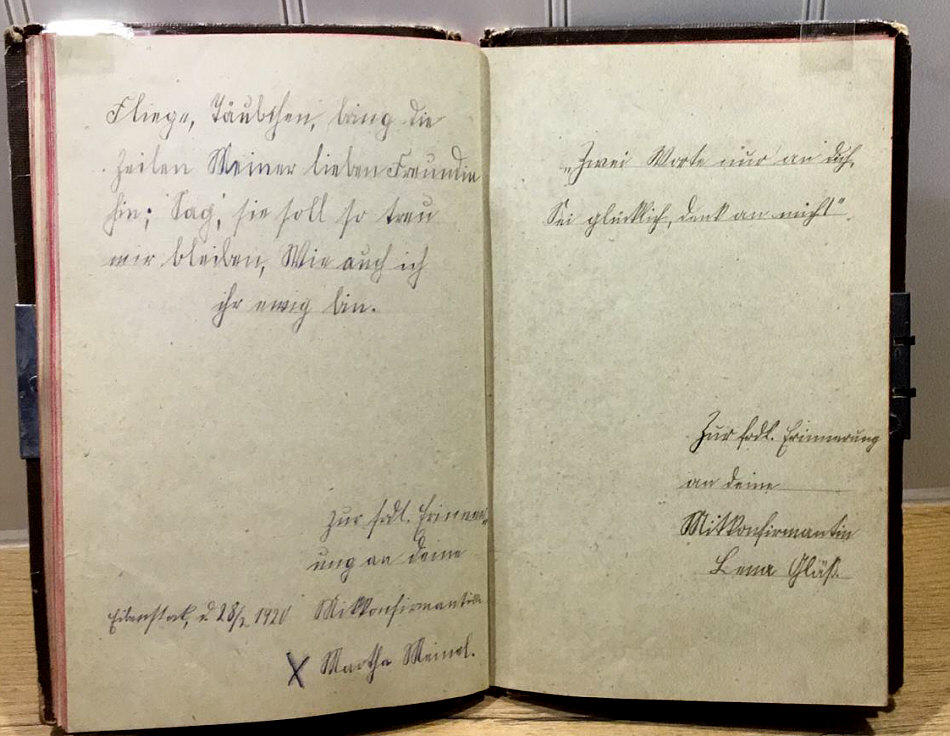 Fliege, Täubchen, bring die
Zeilen Meiner lieben Freundin
hin; Sag, sie soll so treu
mir bleiben, Wie auch ich
ihr ewig bin.
Zur frdl. Erinner-
ung an deine
Eibenstock, d. 28/2 1920 Mitkonfirmantin
X Martha Meinel.
„Zwei Worte nur an dich,
Sei glücklich, denk an mich!“
Zur frdl. Erinnerung
an deine
Mitkonfirmantin
Lena Gläß.